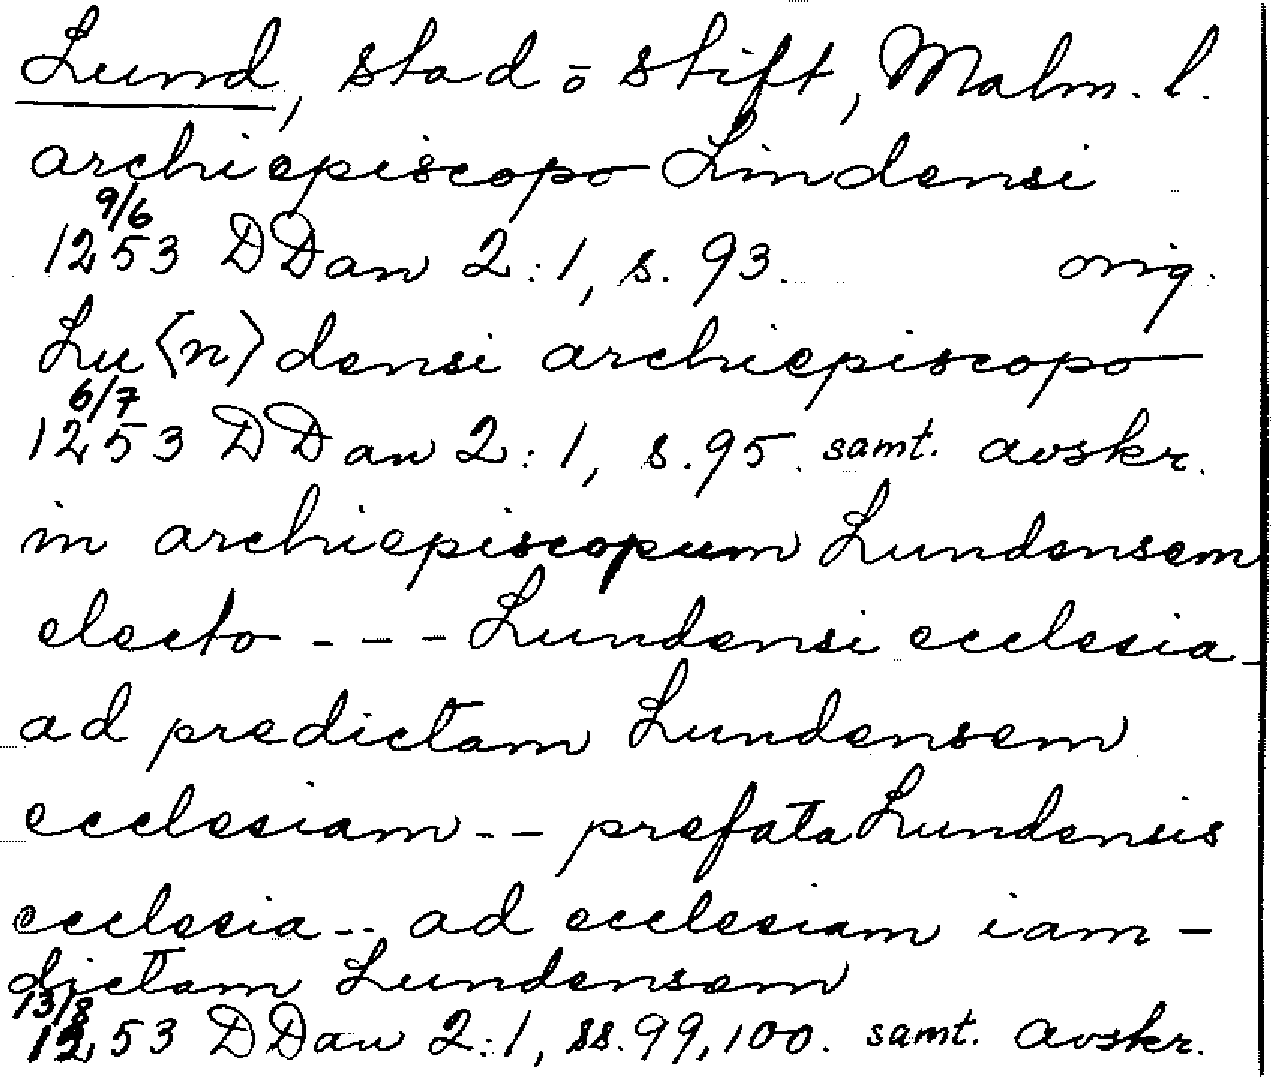 Lund, stad o stift, Malm. l.
archiepiscopo Lindensi
9/6
1253 DDan 2:1, s. 93. orig.
Lu⟨n⟩densi archiepiscopo
6/7
1253 DDan 2:1, s. 95. samt. avskr.
in archiepiscopum Lundensem
electo - - - Lundensi ecclesia -
ad predictam Lundensem
ecclesiam - - prefata Lundensis
ecclesia - - ad ecclesiam iam -
dictam Lundensem
13/8
1253 DDan 2:1, ss. 99, 100. samt. avskr.